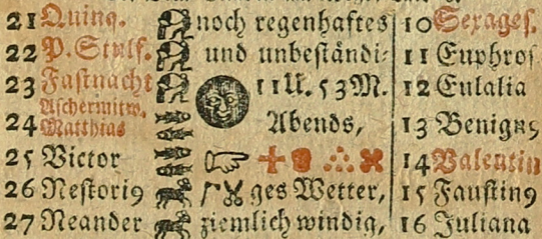 21 Quinq. noch regenhaftes 10 Sexages.
22 P. Stulf. und unbeständi- 11 Euphros
23 Fastnacht 11 U. 53 M. 12 Eulalia
Aschermitw.
24 Matthias Abends, 13 Benignꝰ
25 Victor 14 Valentin
26 Nestoriꝰ ges Wetter, 15 Faustinꝰ
27 Neander ziemlich windig, 16 Juliana